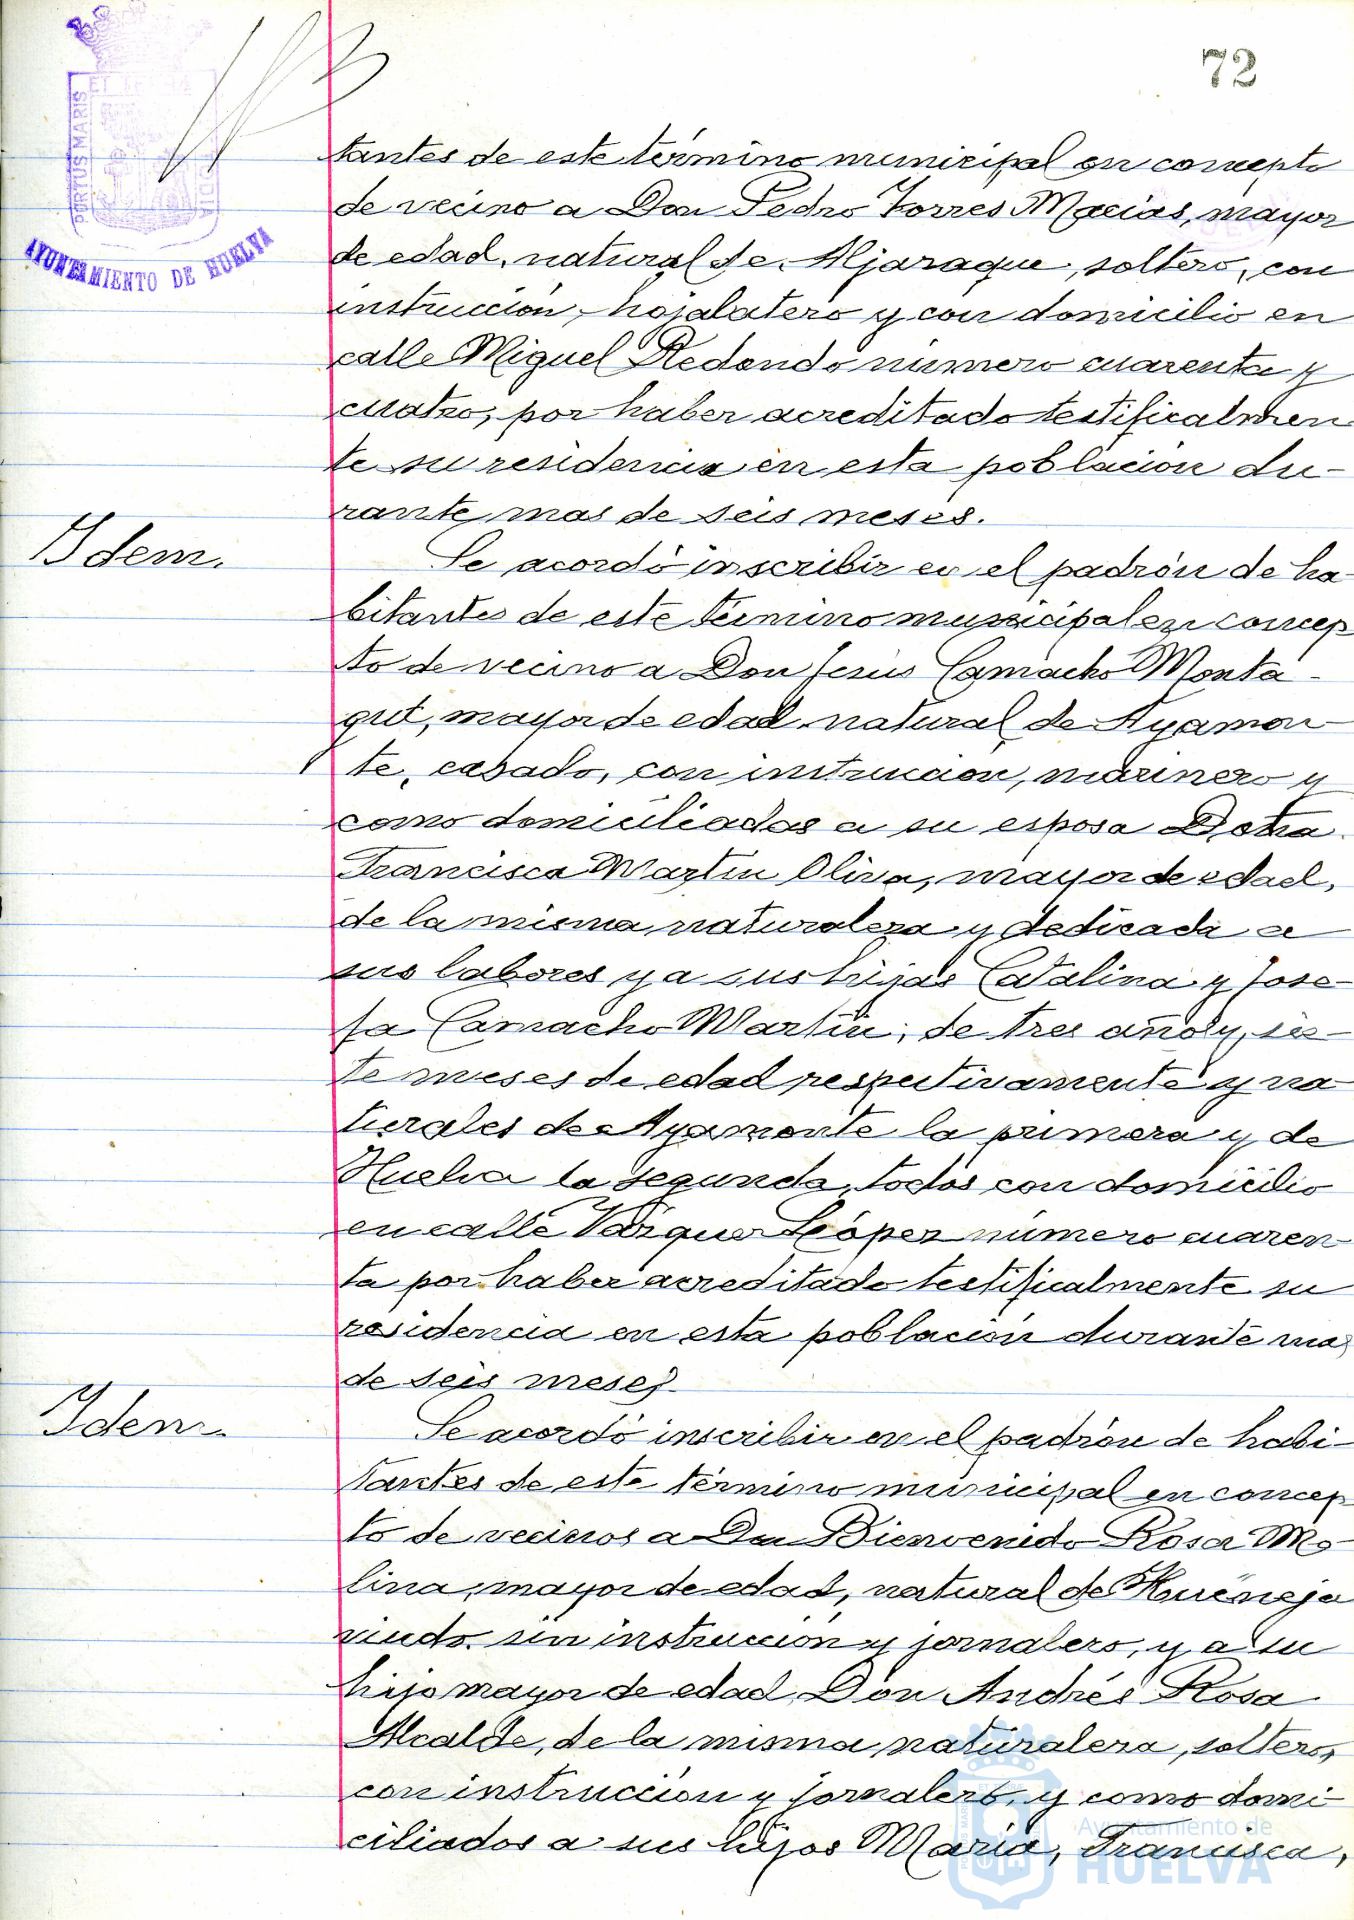 72
PORTUS MARIS
ET TERRÆ
AYUNTAMIENTO DE HUELVA
tantes de este término municipal en concepto
de vecino a Don Pedro Torres Macías, mayor
de edad, natural de Aljaraque, soltero, con
instrucción, hojalatero y con domicilio en
calle Miguel Redondo número cuarenta y
cuatro, por haber acreditado testificalmen
te su residencia en esta población du-
rante mas de seis meses.
Idem.
Se acordó inscribir en el padrón de ha-
bitantes de este término municipal en concep
to de vecino a Don Jesús Camacho Monta-
gut, mayor de edad natural de Ayamon-
te, casado, con instrucción, marinero y
como domiciliadas a su esposa Doña
Francisca Martín Oliva, mayor de edad,
de la misma naturaleza y dedicada a
sus labores y a sus hijas Catalina y Jose-
fa Camacho Martín, de tres años y sie-
te meses de edad respectivamente y na-
turales de Ayamonte la primera y de
Huelva la segunda, todos con domicilio
en calle Vázquez López número cuaren-
ta por haber acreditado testificalmente su
residencia en esta población durante mas
de seis meses.
Idem.
Se acordó inscribir en el padrón de habi-
tantes de este término municipal en concep
to de vecinos a Don Bienvenido Rosa Mo-
lina, mayor de edad, natural de Hueneja
viudo, sin instrucción y jornalero, y a su
hijo mayor de edad Don Andrés Rosa
Alcalde, de la misma naturaleza, soltero,
con instrucción y jornalero, y como domi-
ciliados a sus hijos María, Francisca,
Ayuntamiento de
HUELVA